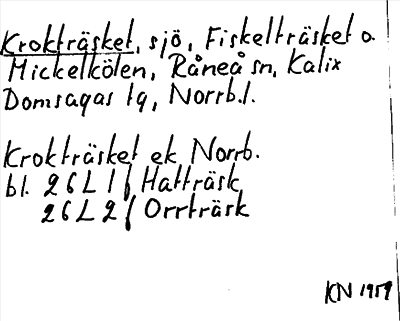 Krokträsket, sjö, Fiskelträsket o.
Mickelkölen, Råneå sn, Kalix
Domsagas tg, Norrb.l.
Krokträsket ek Norrb.
bl. 26L1f Hatträsk
26L2f Orrträsk
KN 1959